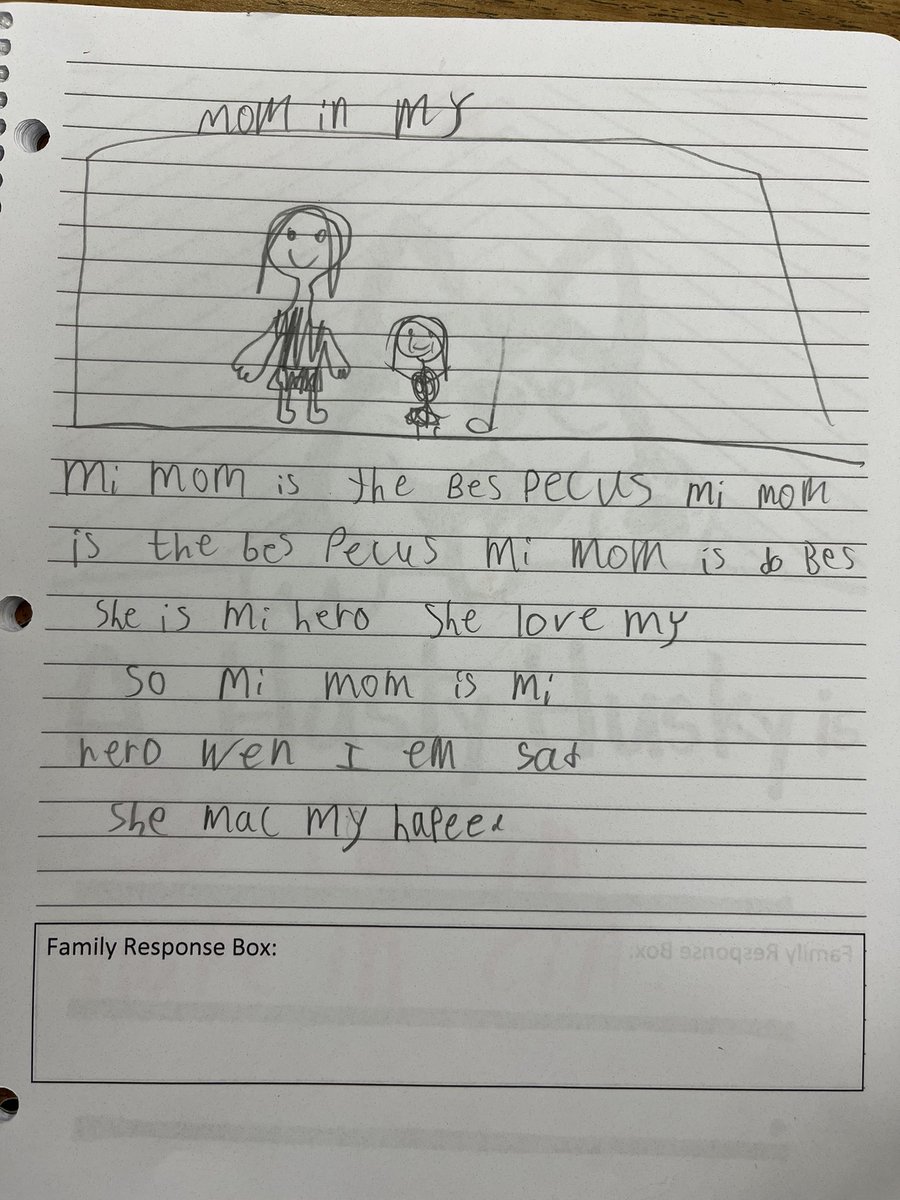 mom in my
Mi mom is the Bes Pecus mi mom
is the bes Pecus mi mom is do Bes
She is mi hero She love my
So Mi mom is mi
hero wen I em sad
She mac my hapee
Family Response Box: